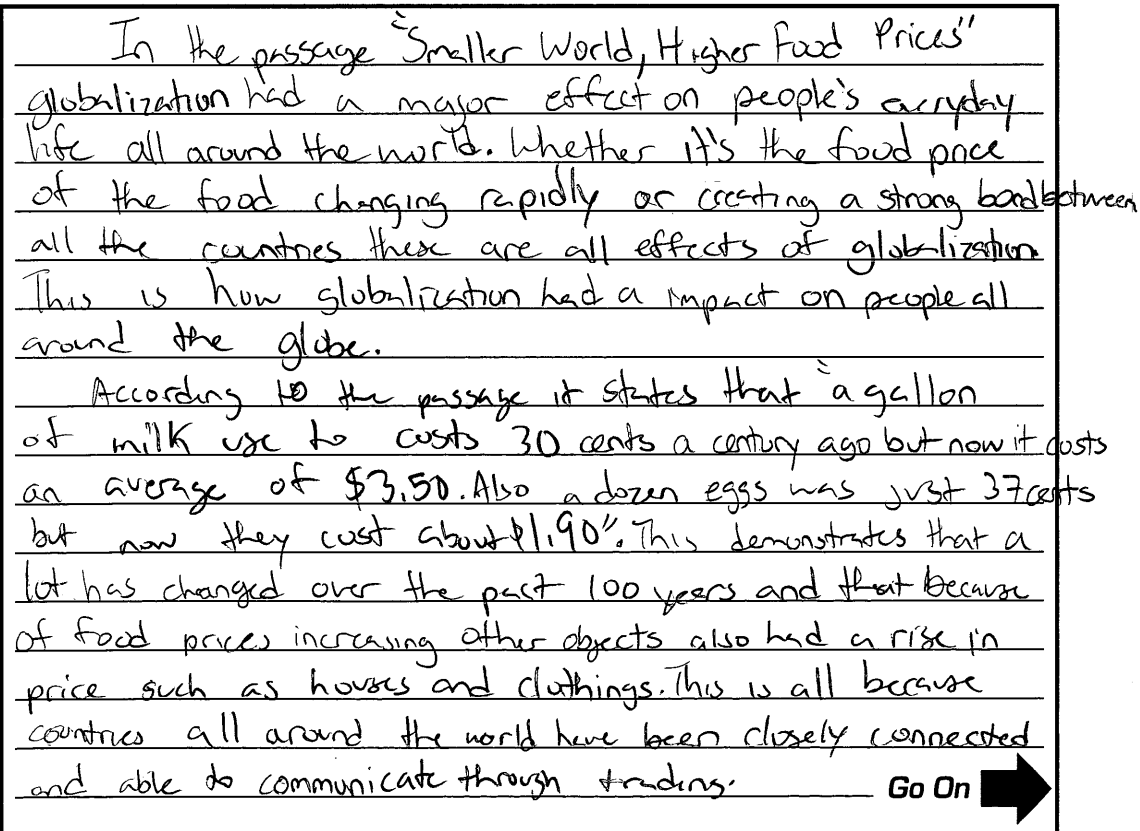 In the passage "Smaller World, Higher Food Prices"
globalization had a major effect on people's everyday
life all around the world. Whether it's the food price
of the food changing rapidly or creating a strong bond between
all the countries these are all effects of globalization.
This is how globalization had a impact on people all
around the globe.
According to the passage it states that "a gallon
of milk use to costs 30 cents a century ago but now it costs
an average of $3.50. Also a dozen eggs was just 37 cents
but now they cost about $1.90". This demonstrates that a
lot has changed over the past 100 years and that because
of food prices increasing other objects also had a rise in
price such as houses and clothings. This is all because
countries all around the world have been closely connected
and able to communicate through trading.
Go On